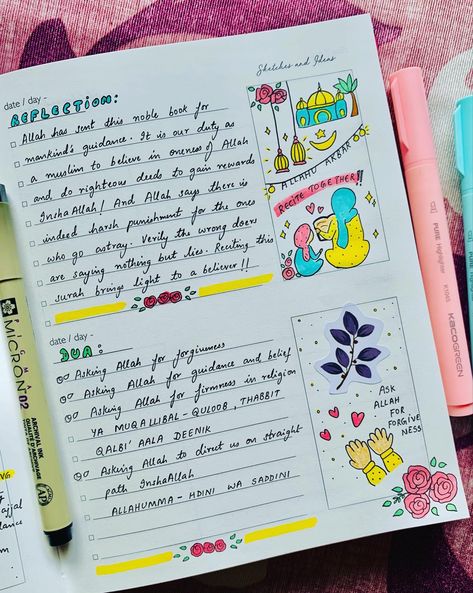 Sketches and Ideas
date / day -
REFLECTION:
Allah has sent this noble book for
mankind's guidance. It is our duty as
a muslim to believe in oneness of Allah
and do righteous deeds to gain rewards
InshaAllah! And Allah says there is
indeed harsh punishment for the one
who go astray. Verily the wrong doers
are saying nothing but lies. Reciting this
surah brings light to a believer!!
ALLAHU AKBAR
RECITE TOGETHER!!
date / day -
DUA:
Asking Allah for forgiveness
Asking Allah for guidance and belief
Asking Allah for firmness in religion
YA MUQALLIBAL-QULOOB, THABBIT
QALBI 'AALA DEENIK
Asking Allah to direct us on straight
path InshaAllah
ALLAHUMMA-HDINI WA SADDINI
ASK
ALLAH
FOR
FORGIVE
NESS
MICRON 02
ARCHIVAL INK
PURE Highlighter
KACOGREEN